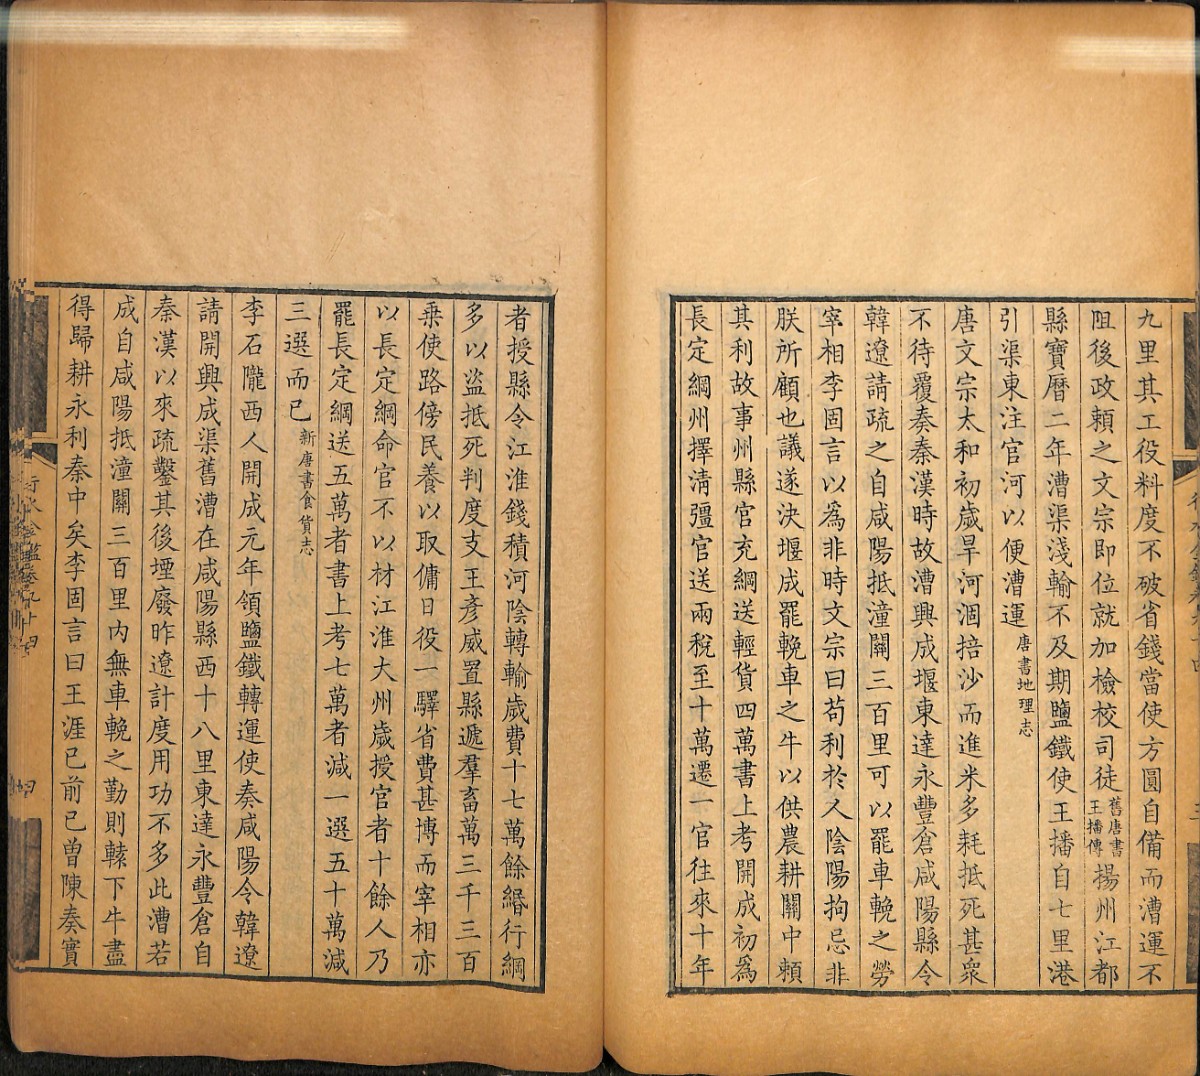 九里其工役料度不破省錢當使方圓自備而漕運不
阻後政賴之文宗即位就加檢校司徒舊唐書王播傳揚州江都
縣寶曆二年漕渠淺輸不及期鹽鐵使王播自七里港
引渠東注官河以便漕運唐書地理志
唐文宗太和初歲旱河涸掊沙而進米多耗抵死甚衆
不待覆奏秦漢時故漕興成堰東達永豐倉咸陽縣令
韓遼請疏之自咸陽抵潼關三百里可以罷車輓之勞
宰相李固言以爲非時文宗曰苟利於人陰陽拘忌非
朕所顧也議遂決堰成罷輓車之牛以供農耕關中頼
其利故事州縣官充綱送輕貨四萬書上考開成初爲
長定綱州擇淸彊官送兩稅至十萬遷一官往來十年
者授縣令江淮錢積河陰轉輸歲費十七萬餘緡行綱
多以盜抵死判度支王彥威置縣遞羣畜萬三千三百
乗使路傍民養以取傭日役一驛省費甚博而宰相亦
以長定綱命官不以材江淮大州歲授官者十餘人乃
罷長定綱送五萬者書上考七萬者減一選五十萬減
三選而已新唐書食貨志
李石隴西人開成元年領鹽鐵轉運使奏咸陽令韓遼
請開興成渠舊漕在咸陽縣西十八里東達永豐倉自
秦漢以來疏鑿其後堙廢昨遼計度用功不多此漕若
成自咸陽抵潼關三百里內無車輓之勤則轅下牛盡
得歸耕永利秦中矣李固言曰王涯已前已曾陳奏實